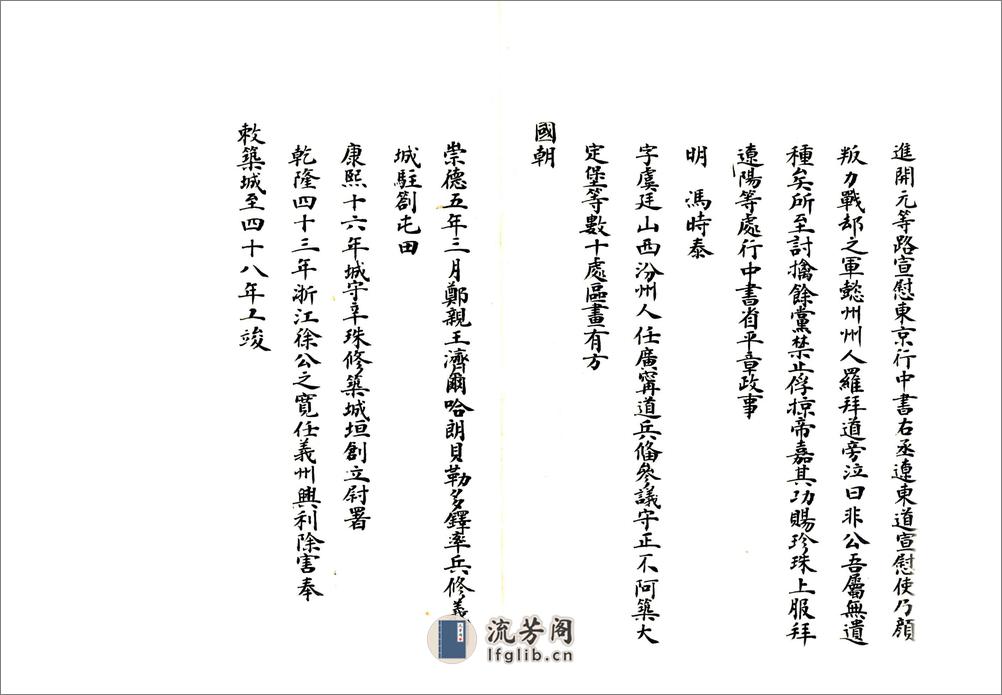 進開元等路宣慰東京行中書右丞遼東道宣慰使乃顏
叛力戰却之軍懿州州人羅拜道旁泣曰非公吾屬無遺
種矣所至討擒餘黨禁止俘掠帝嘉其功賜珍珠上服拜
遼陽等處行中書省平章政事
明　馮時泰
字虞廷山西汾州人任廣寧道兵備參議守正不阿築大
定堡等數十處區畫有方
國朝
崇德五年三月鄭親王濟爾哈朗貝勒多鐸率兵修義
城駐劄屯田
康熙十六年城守辛珠修築城垣創立尉署
乾隆四十三年浙江徐公之寬任義州興利除害奉
敕築城至四十八年工竣
流芳阁
lfglib.cn